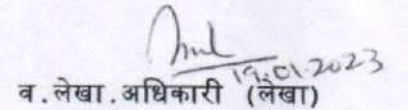 19.01.2023
व.लेखा.अधिकारी (लेखा)